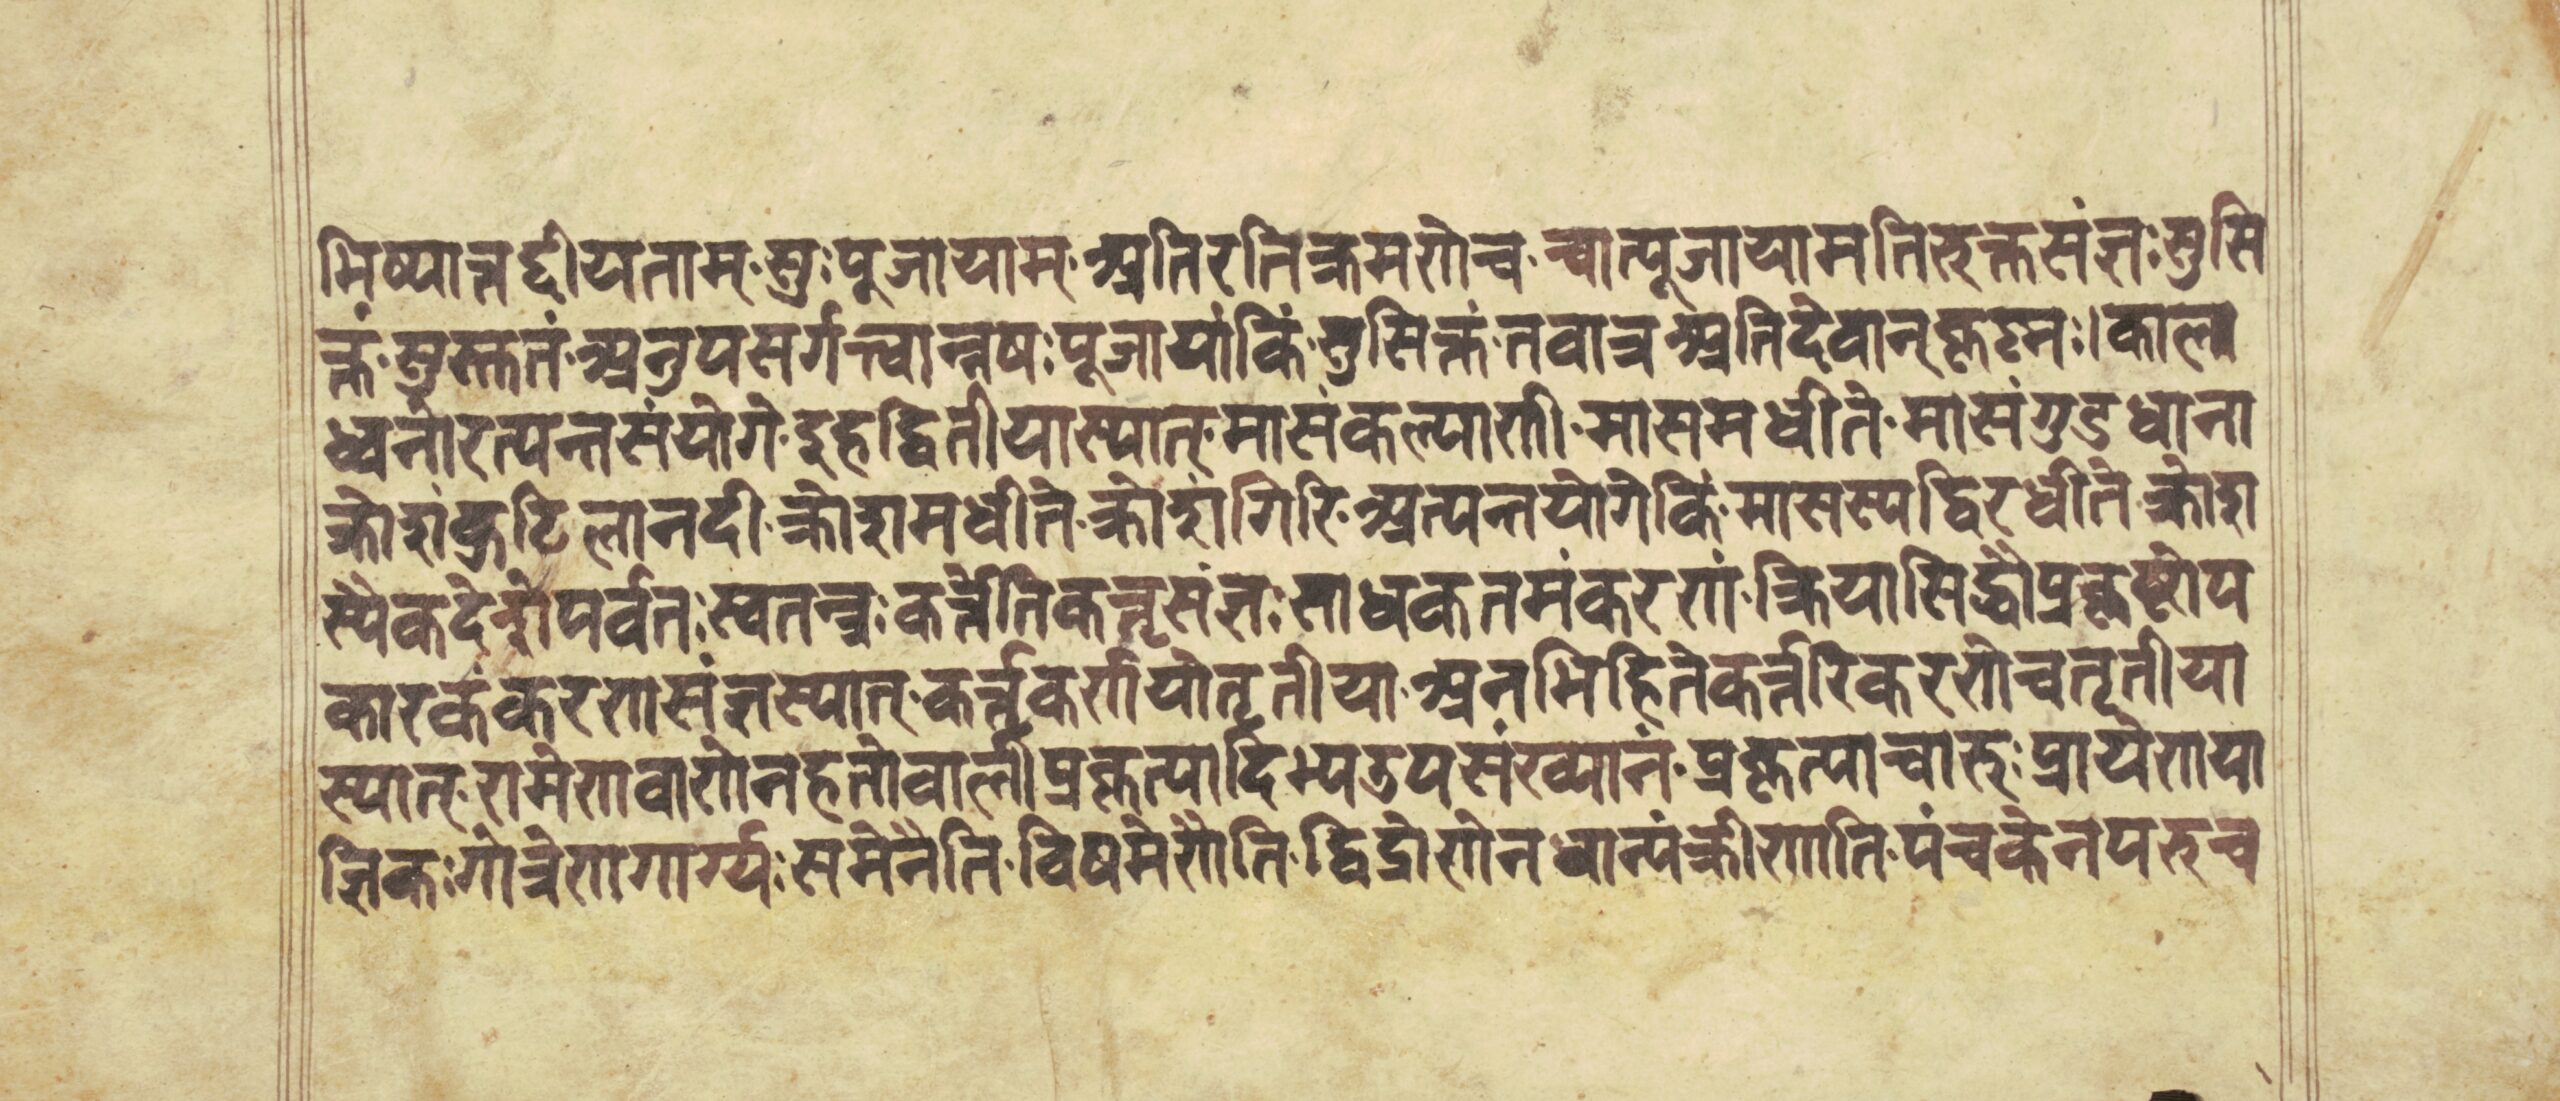 भिष्यान्नद्दीयताम्· सुः पूजायाम्· अतिरतिक्रमणे च· चात्पूजायामतिरुक्तसंज्ञः सुसि
क्तं· सुस्तुतं· अनुपसर्गत्त्वान्नषः पूजायां किं· सुसिक्तं· तवात्र अतिदेवान् कृष्नः। काला
ध्वनोरत्यन्तसंयोगे· इह द्वितीया स्यात्· मासं कल्याणी· मासमधीते· मासं गुडधाना
क्रोशं कुटिला नदी· क्रोशमधीते· क्रोशं गिरि· अत्यन्तयोगे किं· मासस्य द्विरधीते· क्रोश
स्यैकदेशे पर्वतः स्वतन्त्रः कर्त्तेति कर्तृसंज्ञः साधकतमं करणं· क्रियासिद्धौ प्रकृष्टोप
कारकं करणसंज्ञ स्यात्· कर्त्तृकर्णयोतृतीया· अनभिहिते कर्त्तरि करणे च तृतीया
स्यात्· रामेण वाणेन हतो वाली प्रकृत्यादिभ्य उपसंख्यानं· प्रकृत्या चारुः प्रायेण या
ज्ञिकः गोत्रेण गार्ग्यः समेनैति· विषमेणैति· द्विद्रोणेन धान्यं क्रीणाति· पंचकेन परुच